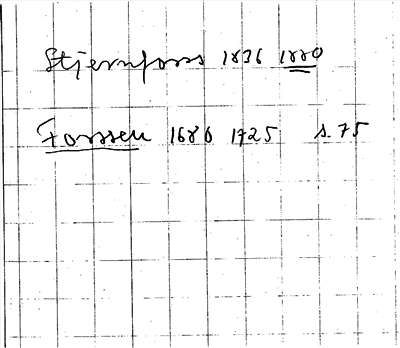 Stjernfors 1836 1880
Forssen 1686 1725 s. 75